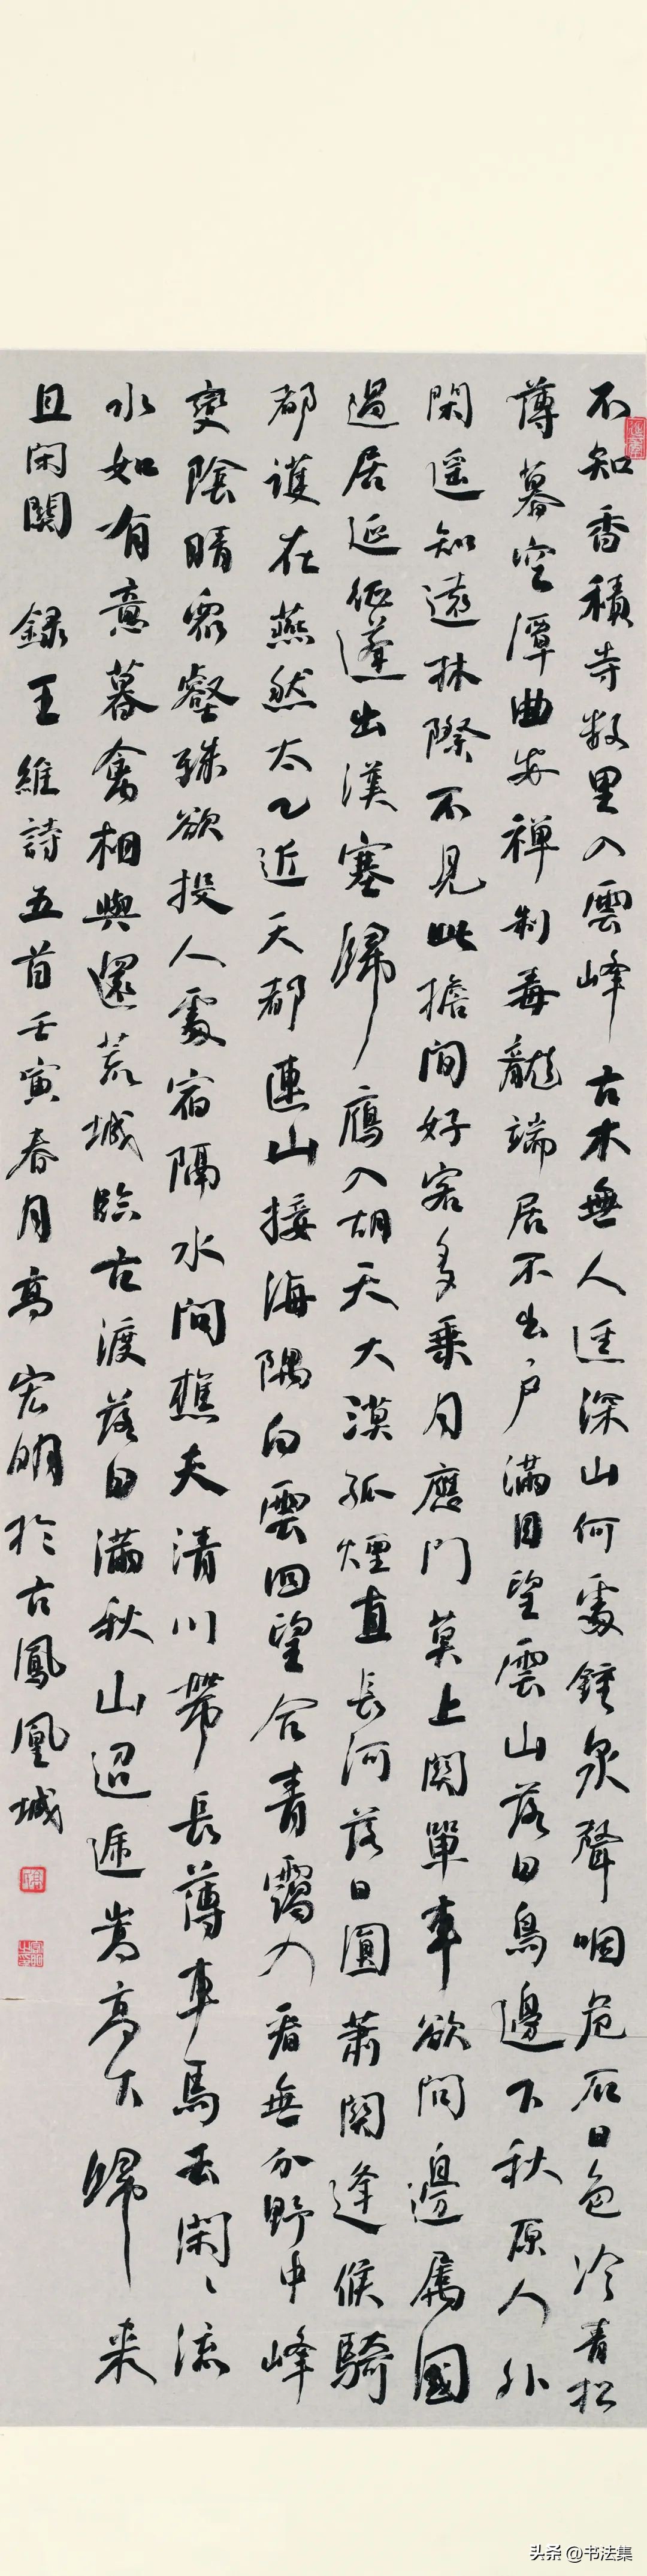 不知香積寺数里入雲峰古木無人逕深山何處鍾泉聲咽危石日色冷青松
薄暮空潭曲安禅制毒龍端居不出户滿目望雲山落日鳥邊下秋原人外
閑遥知遠林際不見此擔間好客多乗月應門莫上関單車欲問邊属國
過居延征蓬出漢塞歸鴈入胡天大漠孤煙直長河落日圓蕭関逢候騎
都護在燕然太乙近天都連山接海隅白雲回望合青靄入看無分野中峰
變陰晴衆壑殊欲投人處宿隔水問樵夫清川帶長薄車馬去閑々流
水如有意暮禽相與還荒城臨古渡落日滿秋山迢遞嵩高下歸来
且閉關 録王維詩五首壬寅春月高宏明於古鳳凰城
头条 @书法集